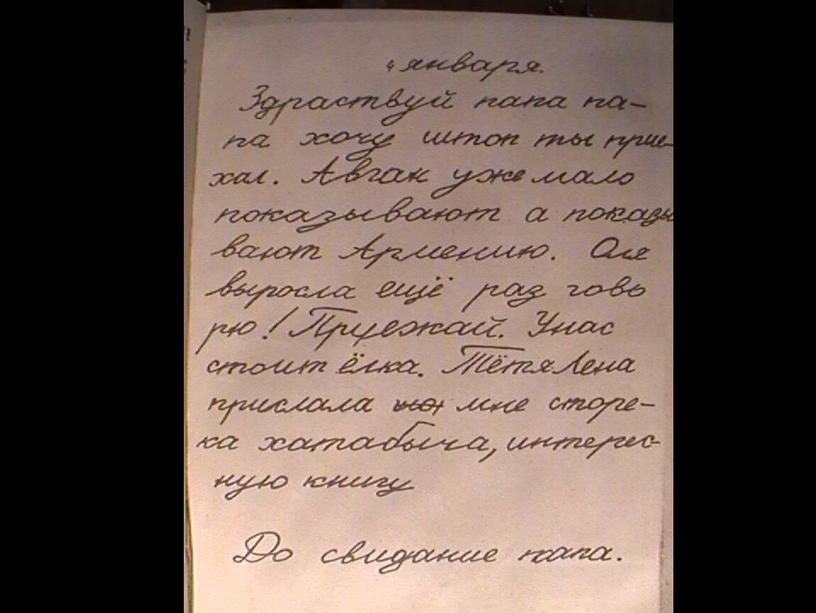 4 января.
Здраствуй папа па-
па хочу штоп ты прие-
хал. Авган уже мало
показывают а показы
вают Армению. Оля
выросла ещё раз гово
рю! Прижай. Унас
стоит ёлка. Тётя Лена
прислала мне сторе-
ка хатабыча, интерес-
ную книгу
До свидание папа.